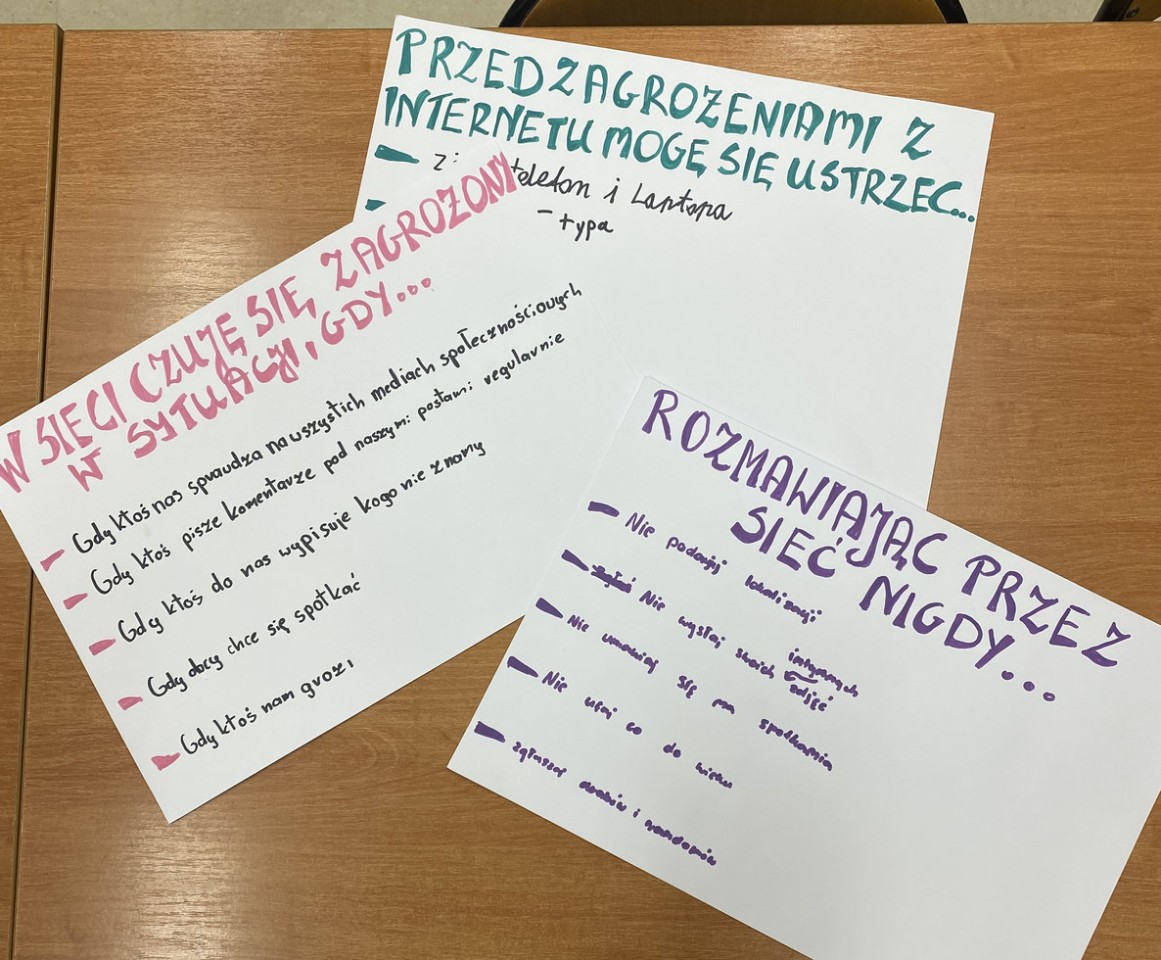 PRZED ZAGROŻENIAMI Z
INTERNETU MOGĘ SIĘ USTRZEC...
telefon i Laptopa
typa
W SIĘCI CZUJĘ SIĘ ZAGROŻONY
W SYTUACJI, GDY...
Gdy ktoś nas sprawdza na wszystich mediach społecznościowych
Gdy ktoś pisze komentarze pod naszymi postami regularnie
Gdy ktoś do nas wypisuje kogo nie znamy
Gdy obcy chce się spotkać
Gdy ktoś nam grozi
ROZMAWIAJĄC PRZEZ
SIEĆ NIGDY...
Nie podawaj lokalizacji
Nie wysłaj swoich intymnych
zdjęć
Nie umawiaj się na spotkania
Nie ufaj co do wieku
zgłaszać i